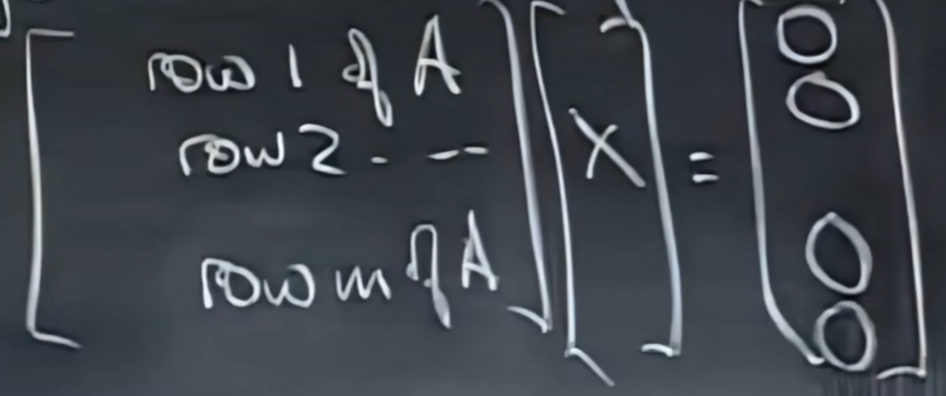 row 1 of A
row 2 - --
row m of A
X
=
0
0
0
0